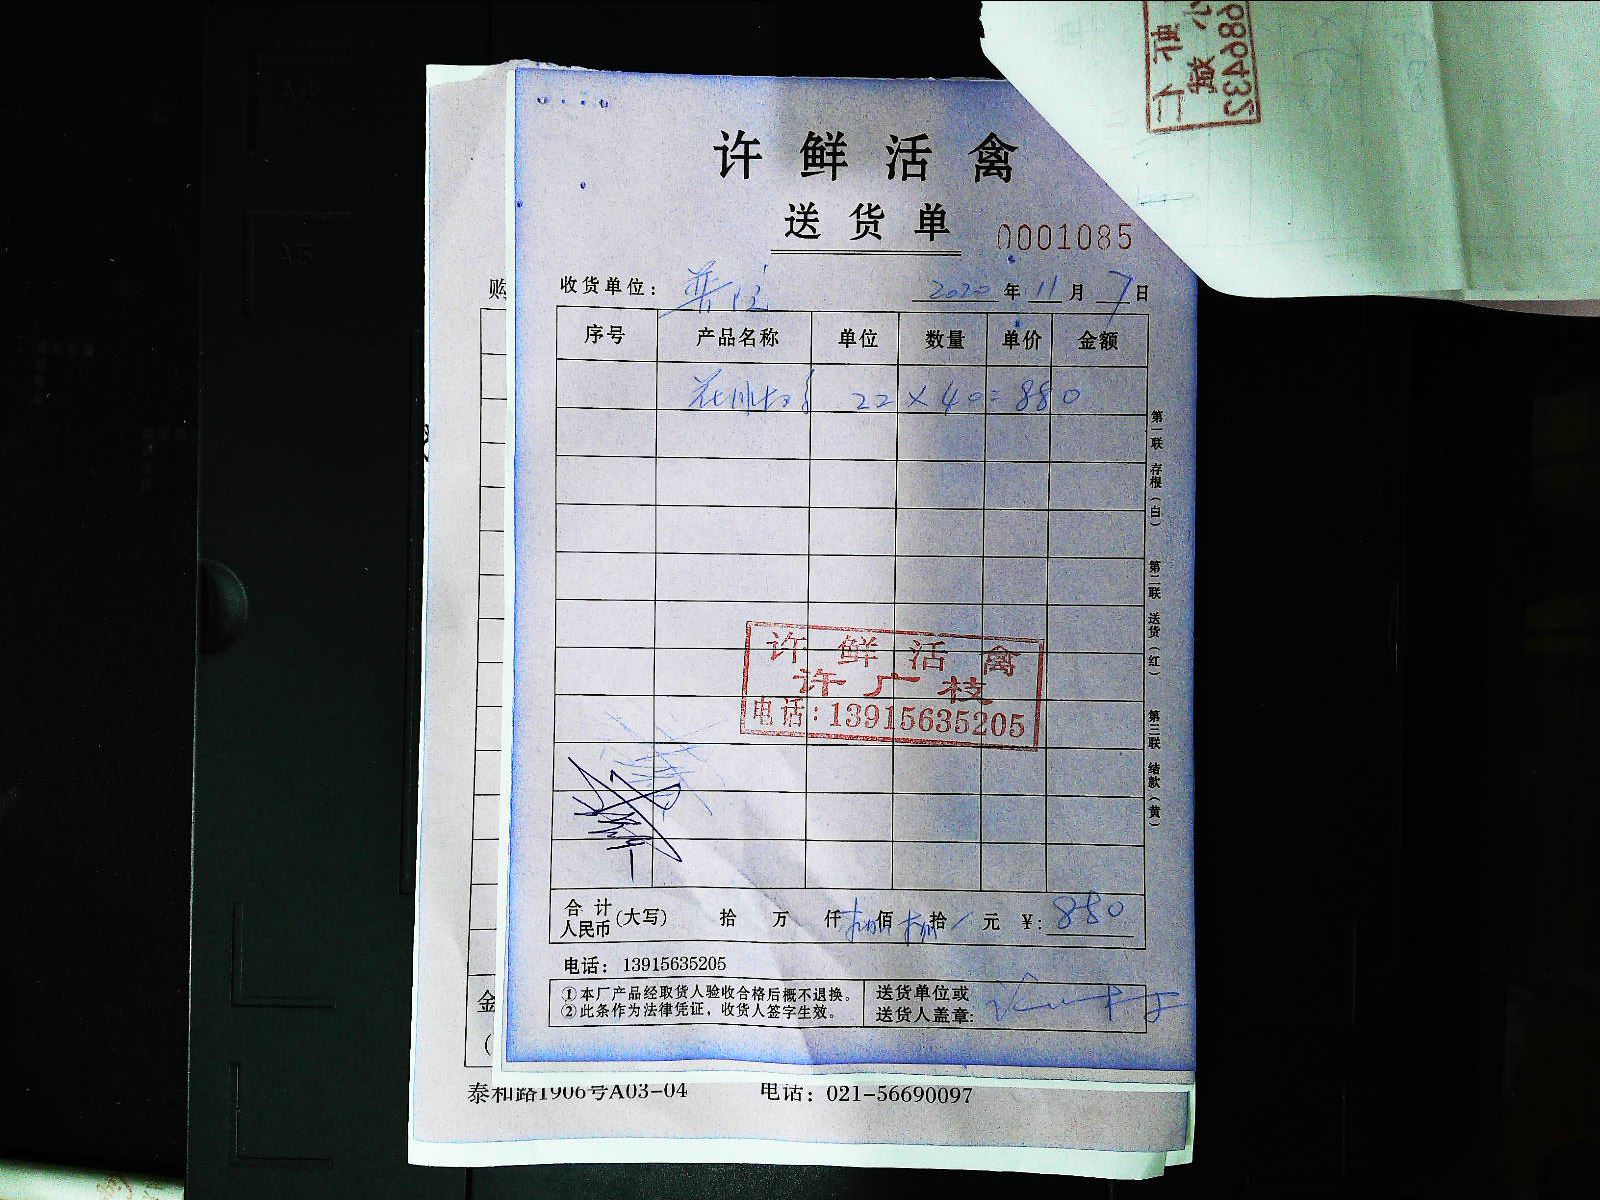 许鲜活禽
送货单
0001085
收货单位：
2020年11月7日
序号 产品名称 单位 数量 单价 金额
22×40=880
许鲜活禽
许广枝
电话:13915635205
合计人民币(大写) 拾 万 仟 捌佰 捌拾 元 ¥: 880
电话: 13915635205
①本厂产品经取货人验收合格后概不退换。
②此条作为法律凭证, 收货人签字生效。
送货单位或
送货人盖章:
第一联 存根（白） 第二联 送货（红） 第三联 结款（黄）
购
金
泰和路1906号A03-04 电话: 021-56690097